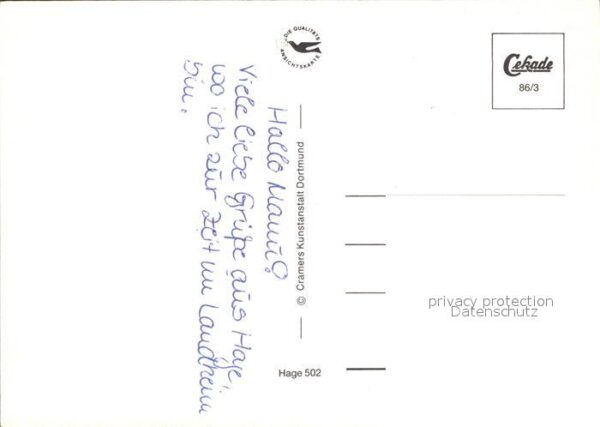 DIE QUALITÄTS
ANSICHTSKARTE
Cekade
86/3
Hallo Manu!
Viele liebe Grüße aus Hage,
wo ich zur Zeit im Landheim
bin.
© Cramers Kunstanstalt Dortmund
Hage 502
privacy protection
Datenschutz